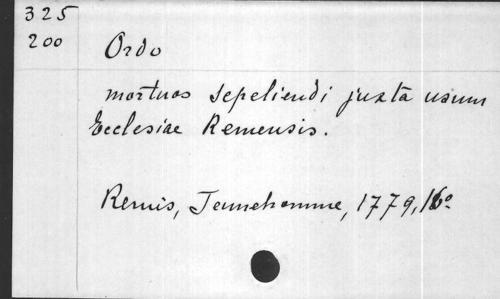 325
200
Ordo
mortuos sepeliendi juxta usum
Ecclesiae Remensis.
Remis, Jeunehomme, 1779, 16º